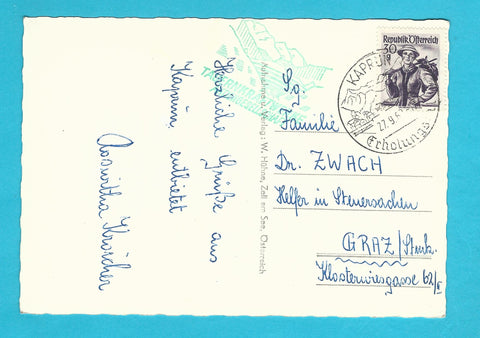 Herzliche Grüße aus
Kaprun entbietet
Roswitha
Aufnahme u. Verlag: W. Höhne, Zell am See, Österreich
Republik Österreich
30
KAPRUN
27.9.5
Erholungs
Sg.
Familie
Dr. ZWACH
Helfer in Steuersachen
GRAZ/Stmk.
Klosterwiesgasse 62/II